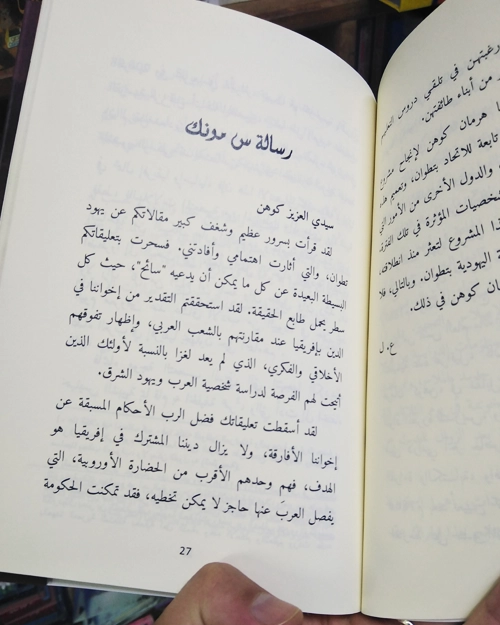 رسالة س مونك
سيدي العزيز كوهن
لقد قرأت بسرور عظيم وشغف كبير مقالاتكم عن يهود
تطوان، والتي أثارت اهتمامي وأفادتني. فسحرت بتعليقاتكم
البسيطة البعيدة عن كل ما يمكن أن يدعيه "سائح"، حيث كل
سطر يحمل طابع الحقيقة. لقد استحققتم التقدير من إخواننا في
الدين بإفريقيا عند مقارنتهم بالشعب العربي، وإظهار تفوقهم
الأخلاقي والفكري، الذي لم يعد لغزا بالنسبة لأولئك الذين
أتيحت لهم الفرصة لدراسة شخصية العرب ويهود الشرق.
لقد أسقطت تعليقاتك فضل الرب الأحكام المسبقة عن
إخواننا الأفارقة، ولا يزال ديننا المشترك في إفريقيا هو
الهدف، فهم وحدهم الأقرب من الحضارة الأوروبية، التي
يفصل العرب عنها حاجز لا يمكن تخطيه، فقد تمكنت الحكومة
27
رغبتهن في تلقي دروس التعليم
من أبناء طائفتهن.
هرمان كوهن لإنجاح مشروع
تابعة للاتحاد بتطوان، وتعميم
والدول الأخرى من الأمور التي
شخصيات المؤثرة في تلك الفترة
المشروع لتعثر منذ انطلاقه
اليهودية بتطوان. وبالتالي، فلا
مان كوهن في ذلك.
ع. ل